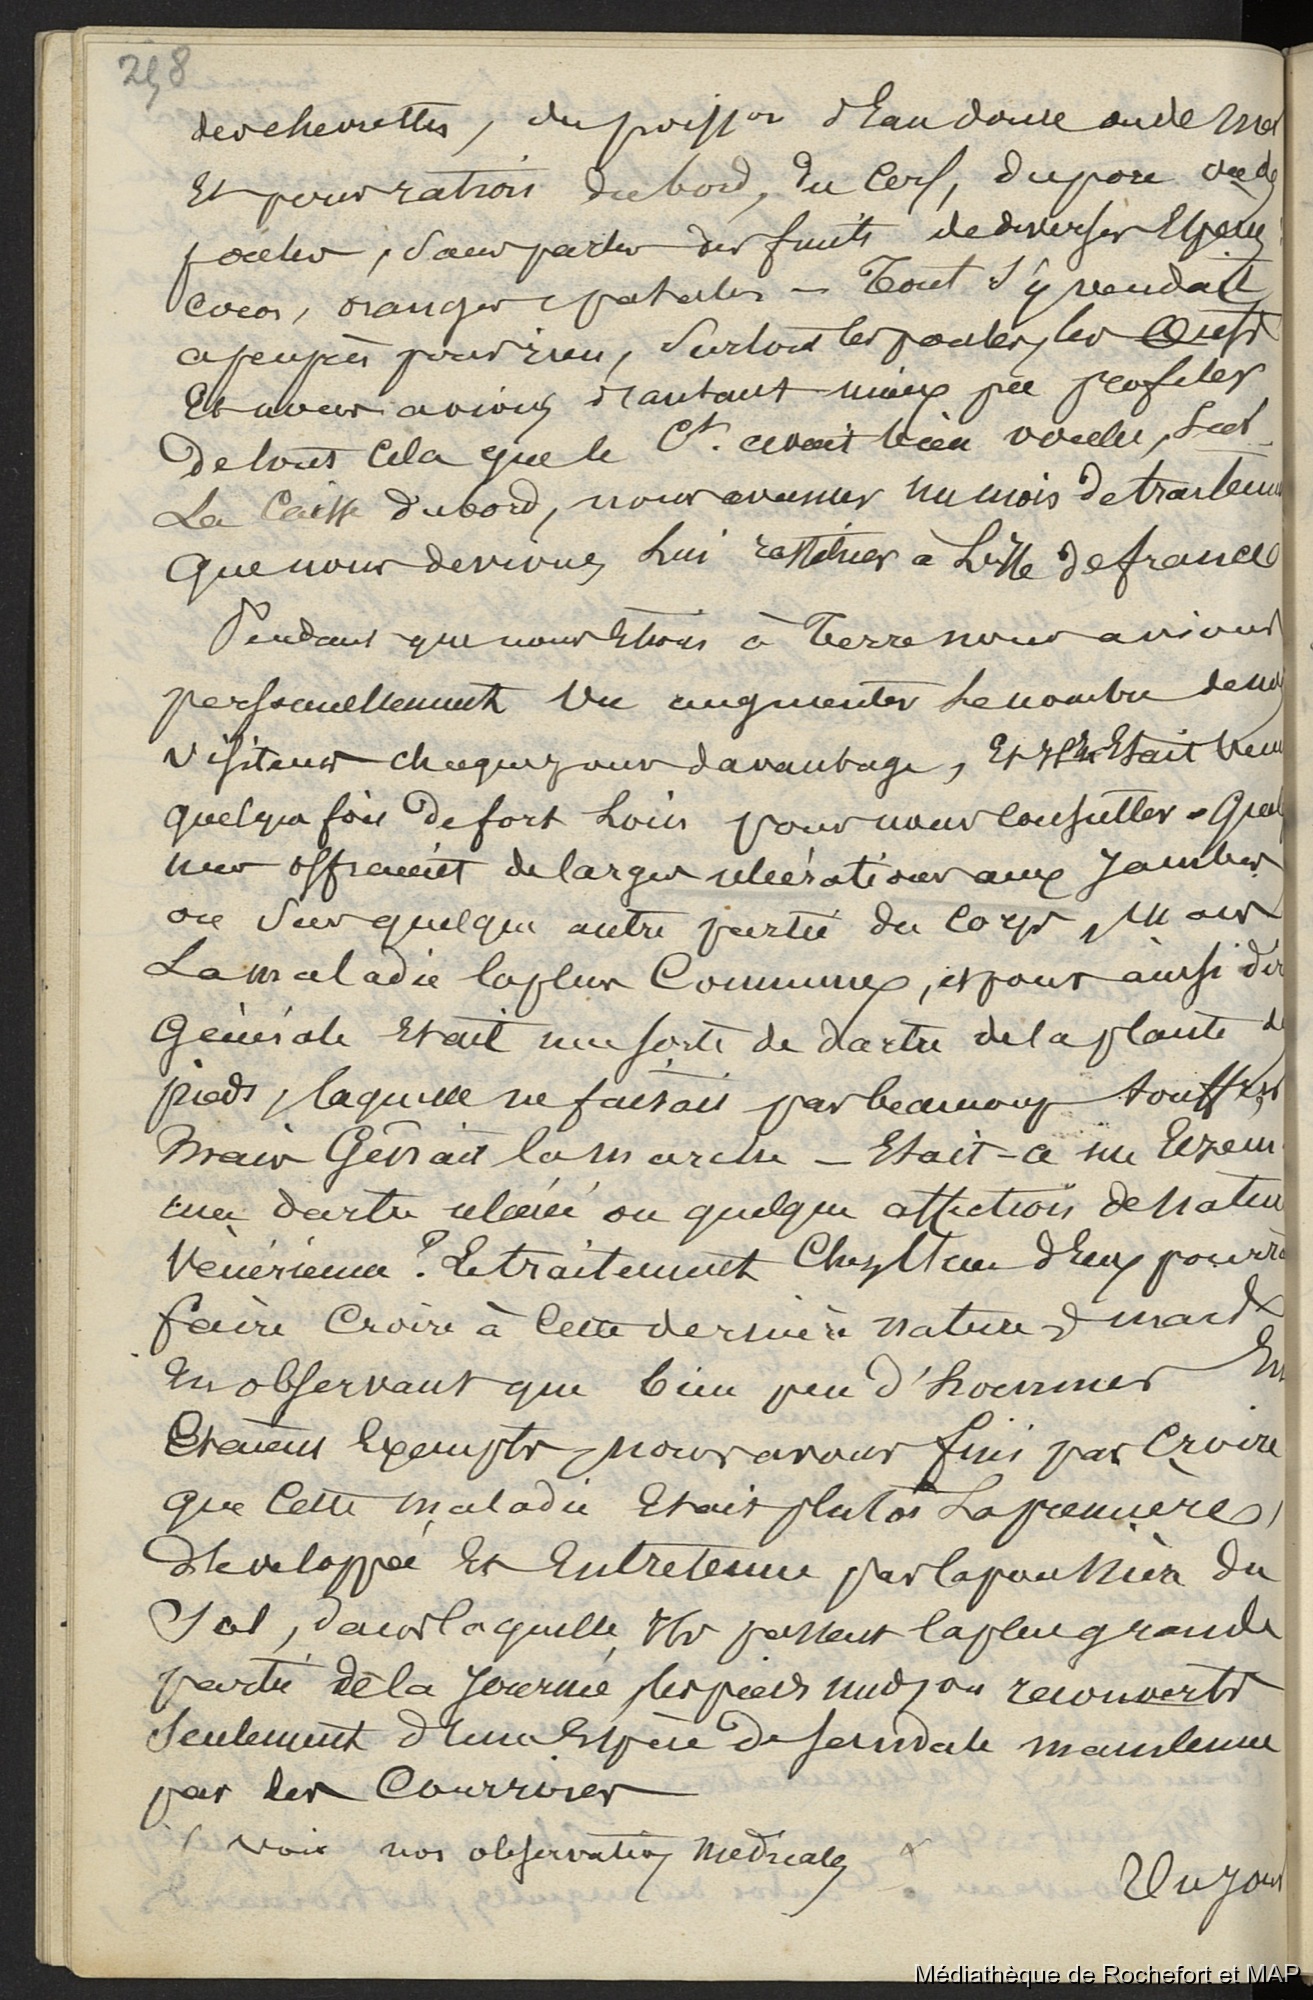 298
des chevrettes, du poisson d'Eau douce ou de mer
Et pour ration du bord, du Cerf, du porc ou de
poules, sans parler des fruits de diverses Espèces
Cocos, oranges, patates – Tout s'y vendait
a peuprès pour rien, surtout les poules, les Oeufs
Et nous avions d'autant mieux pu profiter
De tout Cela que le Ct. avait bien voulu, sur
La Caisse du bord, nous avancer un mois de traitem
Que nous devions lui restituer à L'isle de france
Pendant que nous Etions à Terre nous avions
personnellement Vu augmenter Le nombre de nos
visiteurs chaque jour davantage, Et Il En Etait venu
quelque fois De fort Loin pour nous Consulter -
nous offraient de larges ulcérations aux Jambes
ou Sur quelque autre partie du Corps, Mais
La maladie la plus Commune, et pour ainsi dir
Générale Etait une sorte de dartre de la plante de
pieds, laquelle ne faisait pas beaucoup souffrir
Mais Gênait la marche – Etait-ce un Eczem
une dartre ulcérée ou quelque affection de Natur
Vénérienne ? Le traitement Chez L'un d'Eux pourra
faire Croire à Cette dernière nature, mais
En observant que bien peu d'hommes En
Etaient Exempts, nous avons fini par Croire
que Cette maladie Etait plutôt La première,
développée Et Entretenue par la poussière du
Sol, dans laquelle Ils passent la plus grande
partie de la Journée, les pieds nuds, ou recouverts
Seulement d'une Espèce De sandale maintenue
par des Courroies
voir nos observations Médicales
Un jour
Médiathèque de Rochefort et MAP